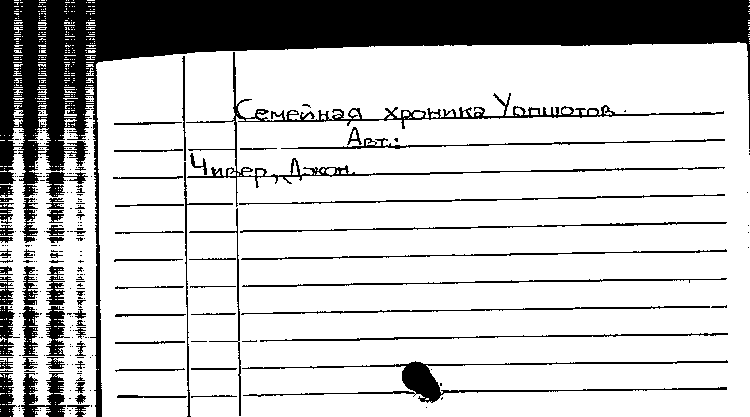 Семейная хроника Уопшотов.
Авт.:
Чивер, Джон.